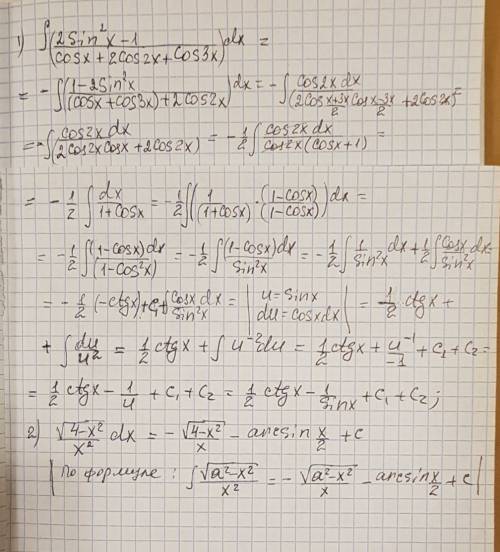 1) ∫(2Sin²x-1)/(cosx+2cos2x+cos3x) dx =
= -∫(1-2Sin²x)/((cosx+cos3x)+2cos2x) dx = -∫cos2x dx/(2cos(x+3x)/2 cos(x-3x)/2 + 2cos2x) =
= -∫cos2x dx/(2cos2x cosx+2cos2x) = -1/2 ∫cos2x dx/(cos2x(cosx+1)) =
= -1/2 ∫dx/(1+cosx) = -1/2 ∫(1/(1+cosx) · (1-cosx)/(1-cosx)) dx =
= -1/2 ∫(1-cosx)dx/(1-cos²x) = -1/2 ∫(1-cosx)dx/Sin²x = -1/2 ∫1/Sin²x dx + 1/2 ∫cosx dx/Sin²x =
= -1/2 (-ctgx)+c₁+∫cosx dx/Sin²x = |u=sinx du=cosxdx| = 1/2 ctgx +
+ ∫du/u² = 1/2 ctgx + ∫u⁻²du = 1/2 ctgx + u⁻¹/-1 + c₁ + c₂ =
= 1/2 ctgx - 1/u + c₁ + c₂ = 1/2 ctgx - 1/sinx + c₁ + c₂;
2) √(4-x²)/x² dx = -√(4-x²)/x - arcsin x/2 + c
|По формуле: ∫√(a²-x²)/x² = -√(a²-x²)/x - arcsin x/2 + c|